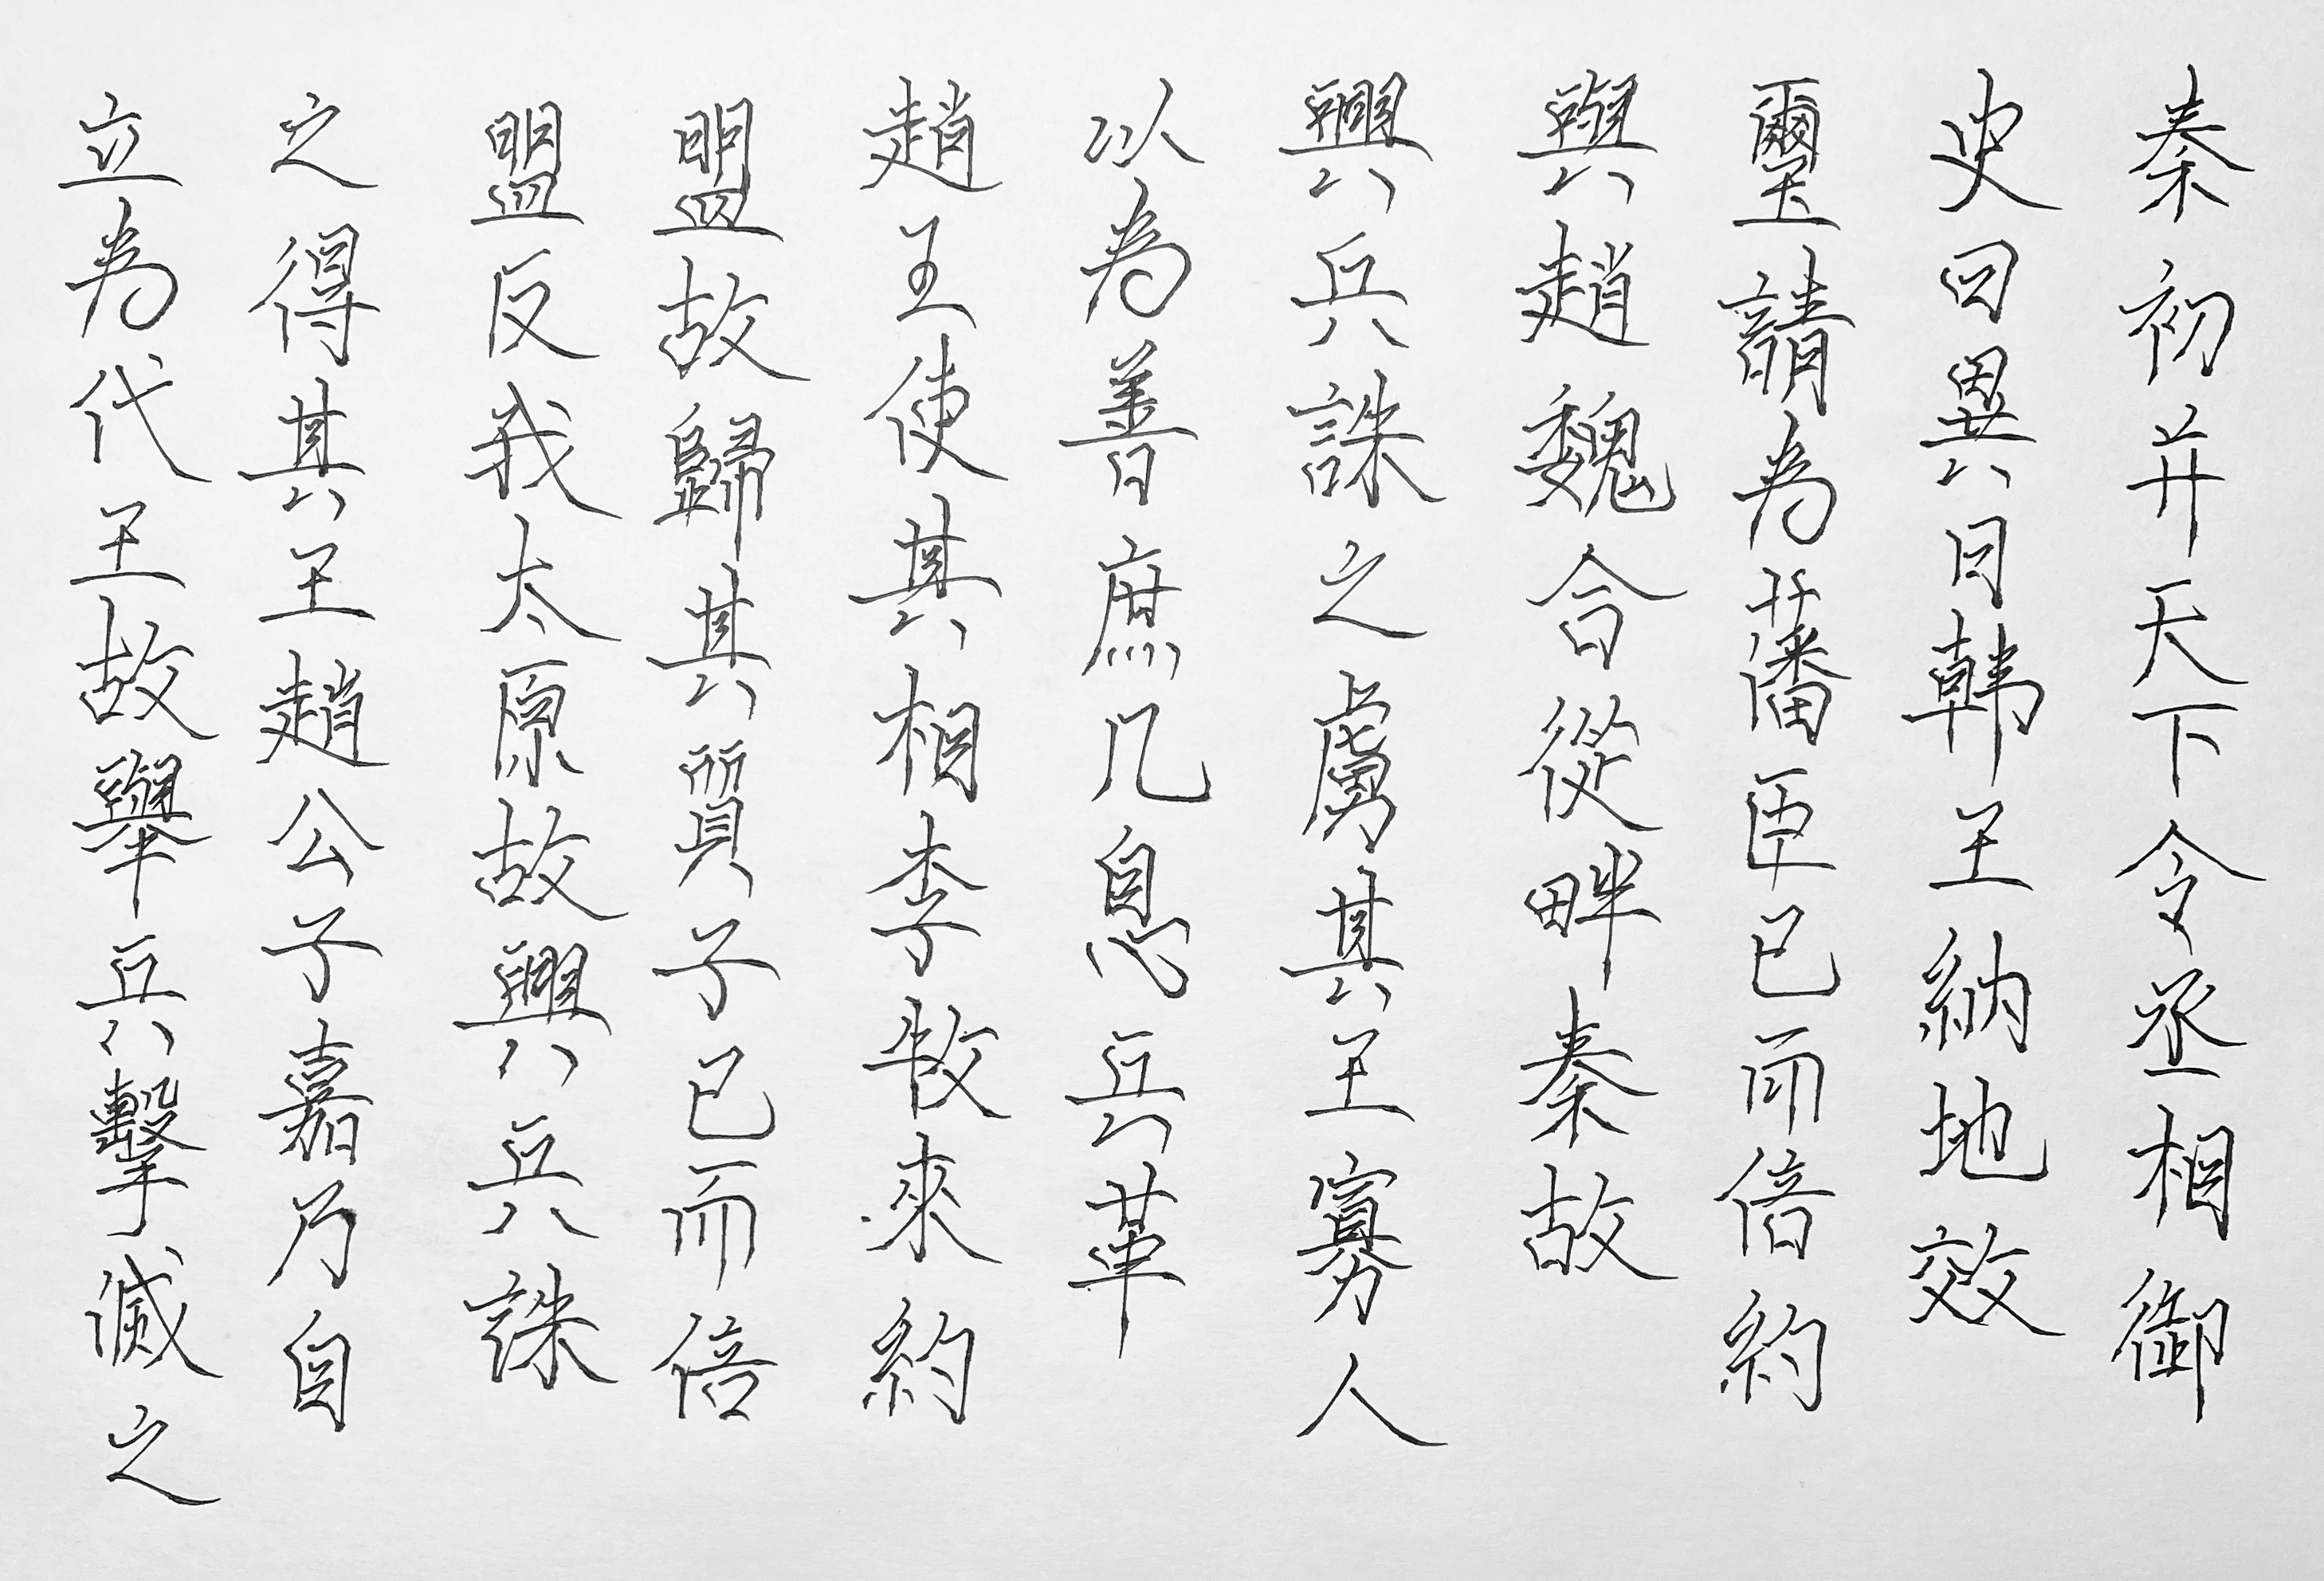 秦初并天下令丞相御
史曰異日韓王納地效
璽請為藩臣已而倍約
與趙魏合從畔秦故
興兵誅之虜其王寡人
以為善庶几息兵革
趙王使其相李牧來約
盟故歸其質子已而倍
盟反我太原故興兵誅
之得其王趙公子嘉乃自
立為代王故舉兵擊滅之